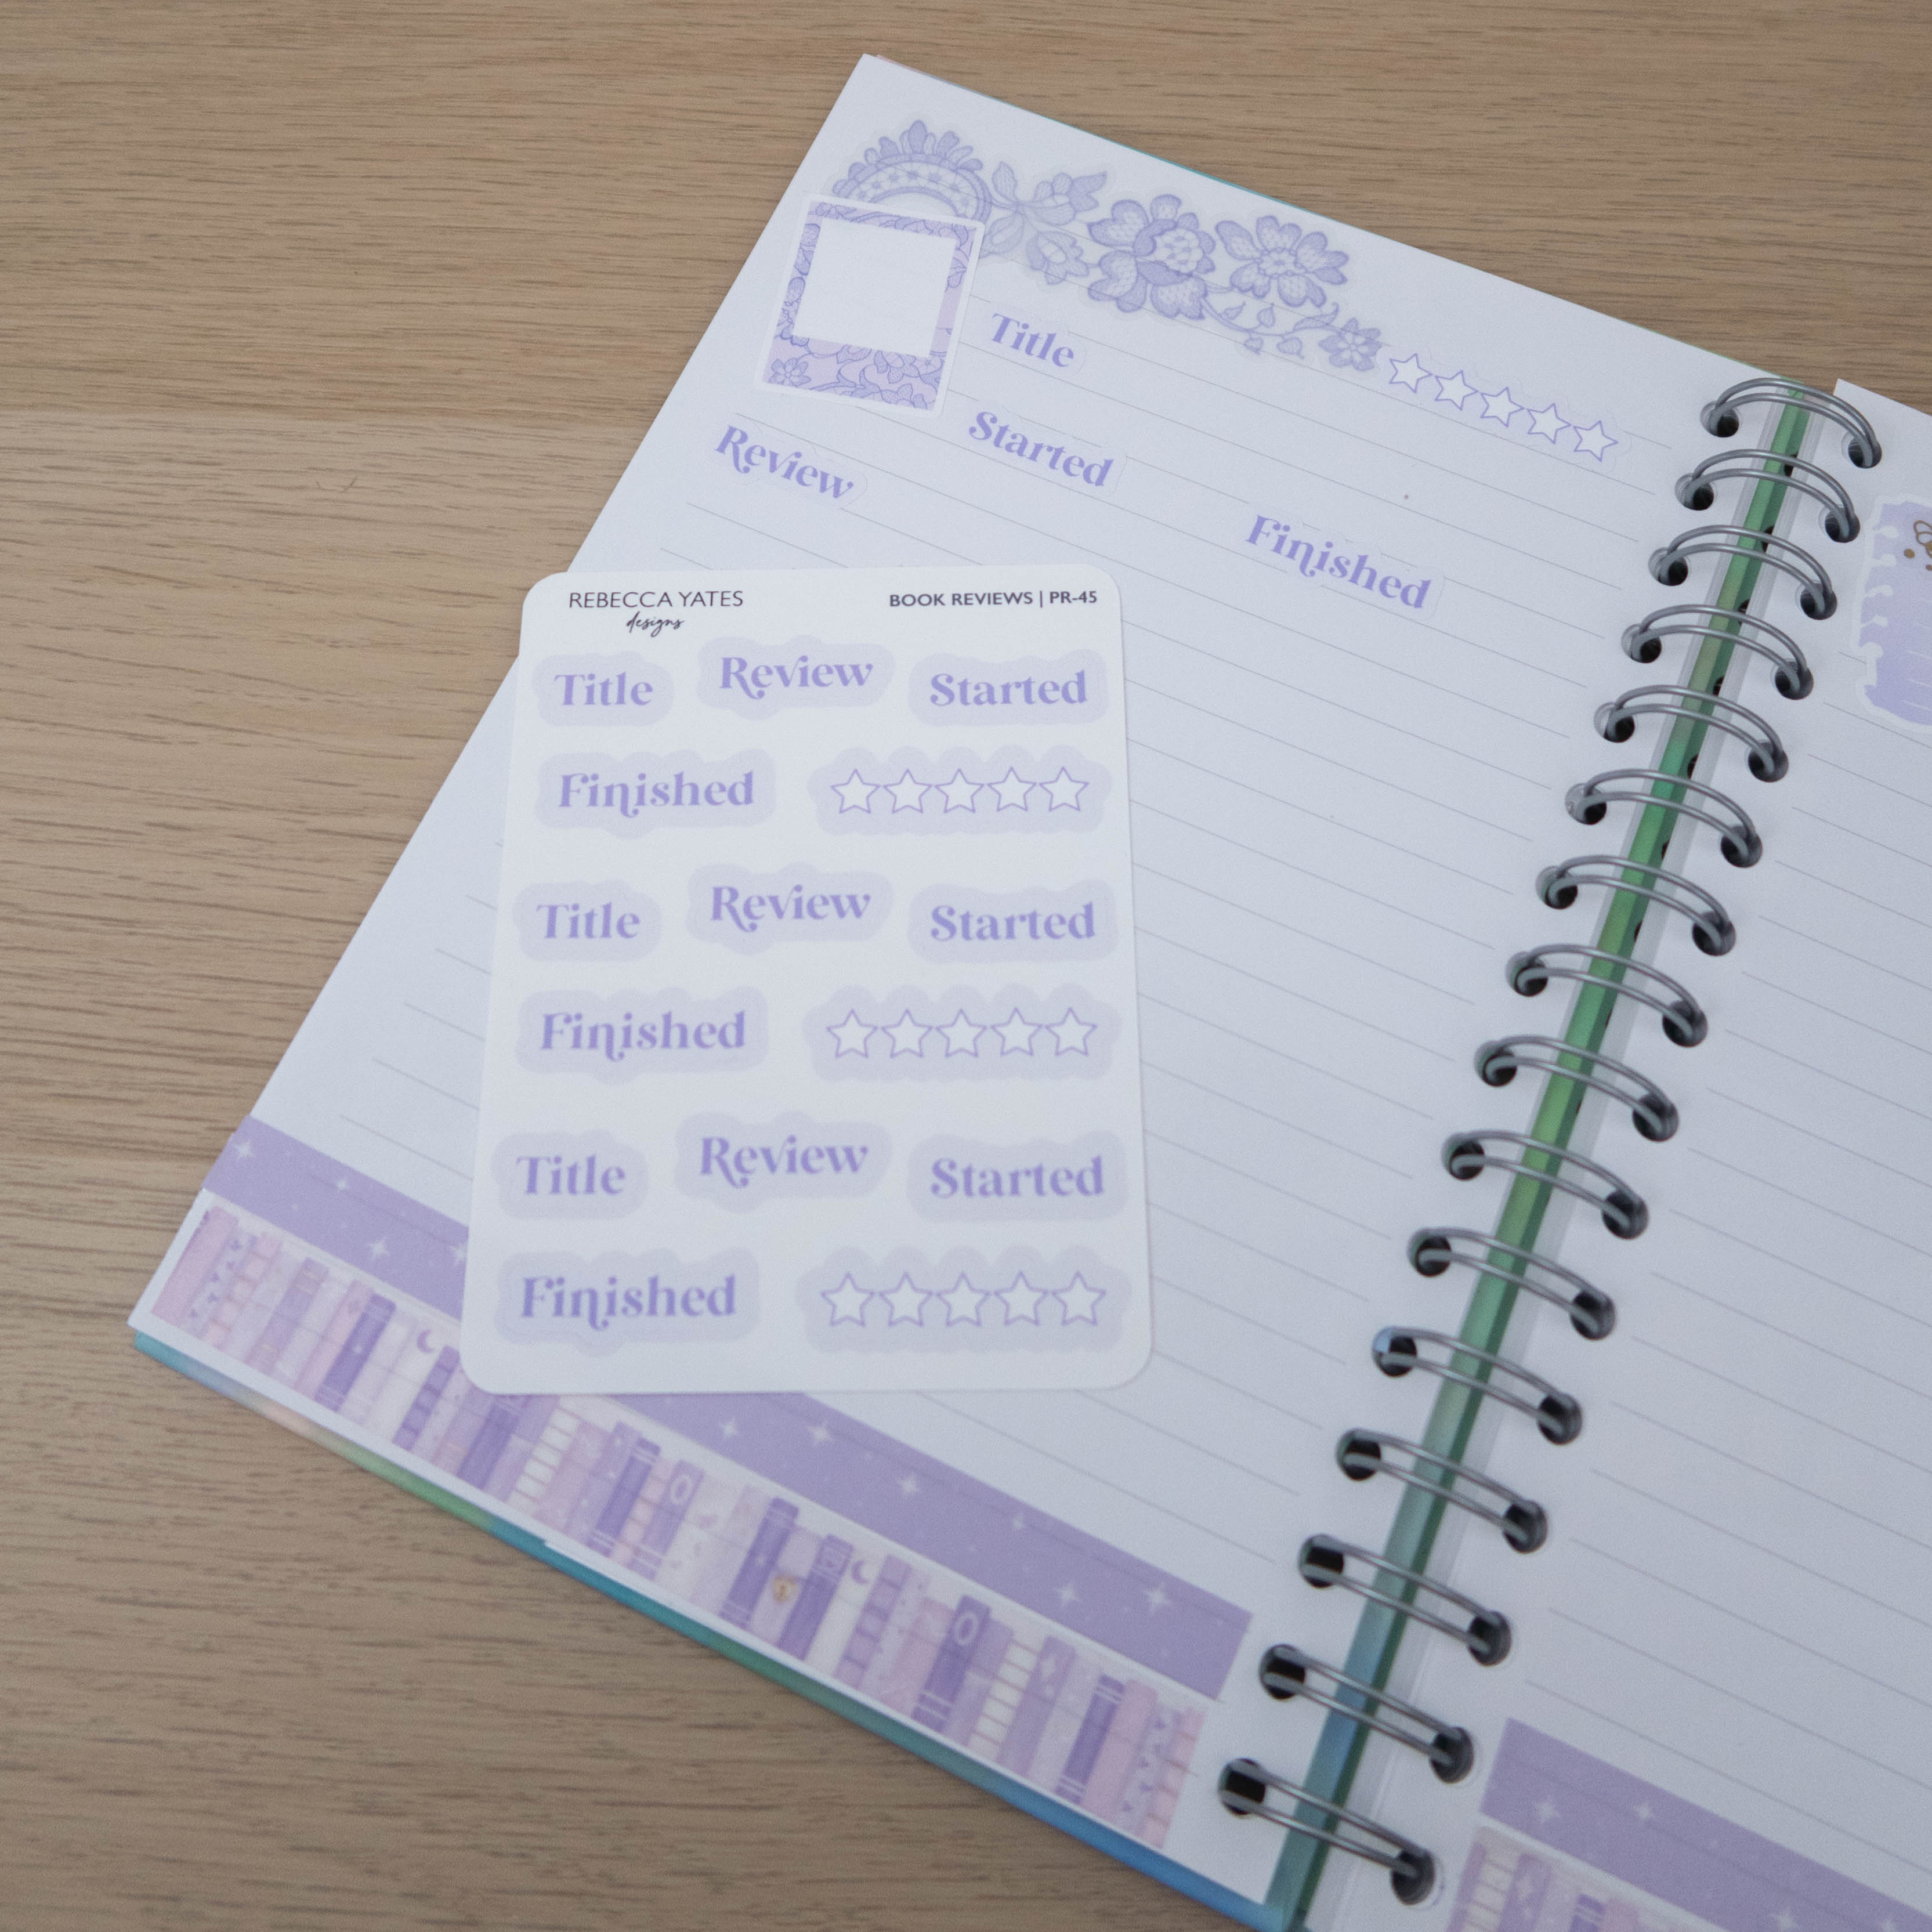 Title
Started
Review
Finished
REBECCA YATES
designs
BOOK REVIEWS | PR-45
Title Review Started
Finished
Title Review Started
Finished
Title Review Started
Finished